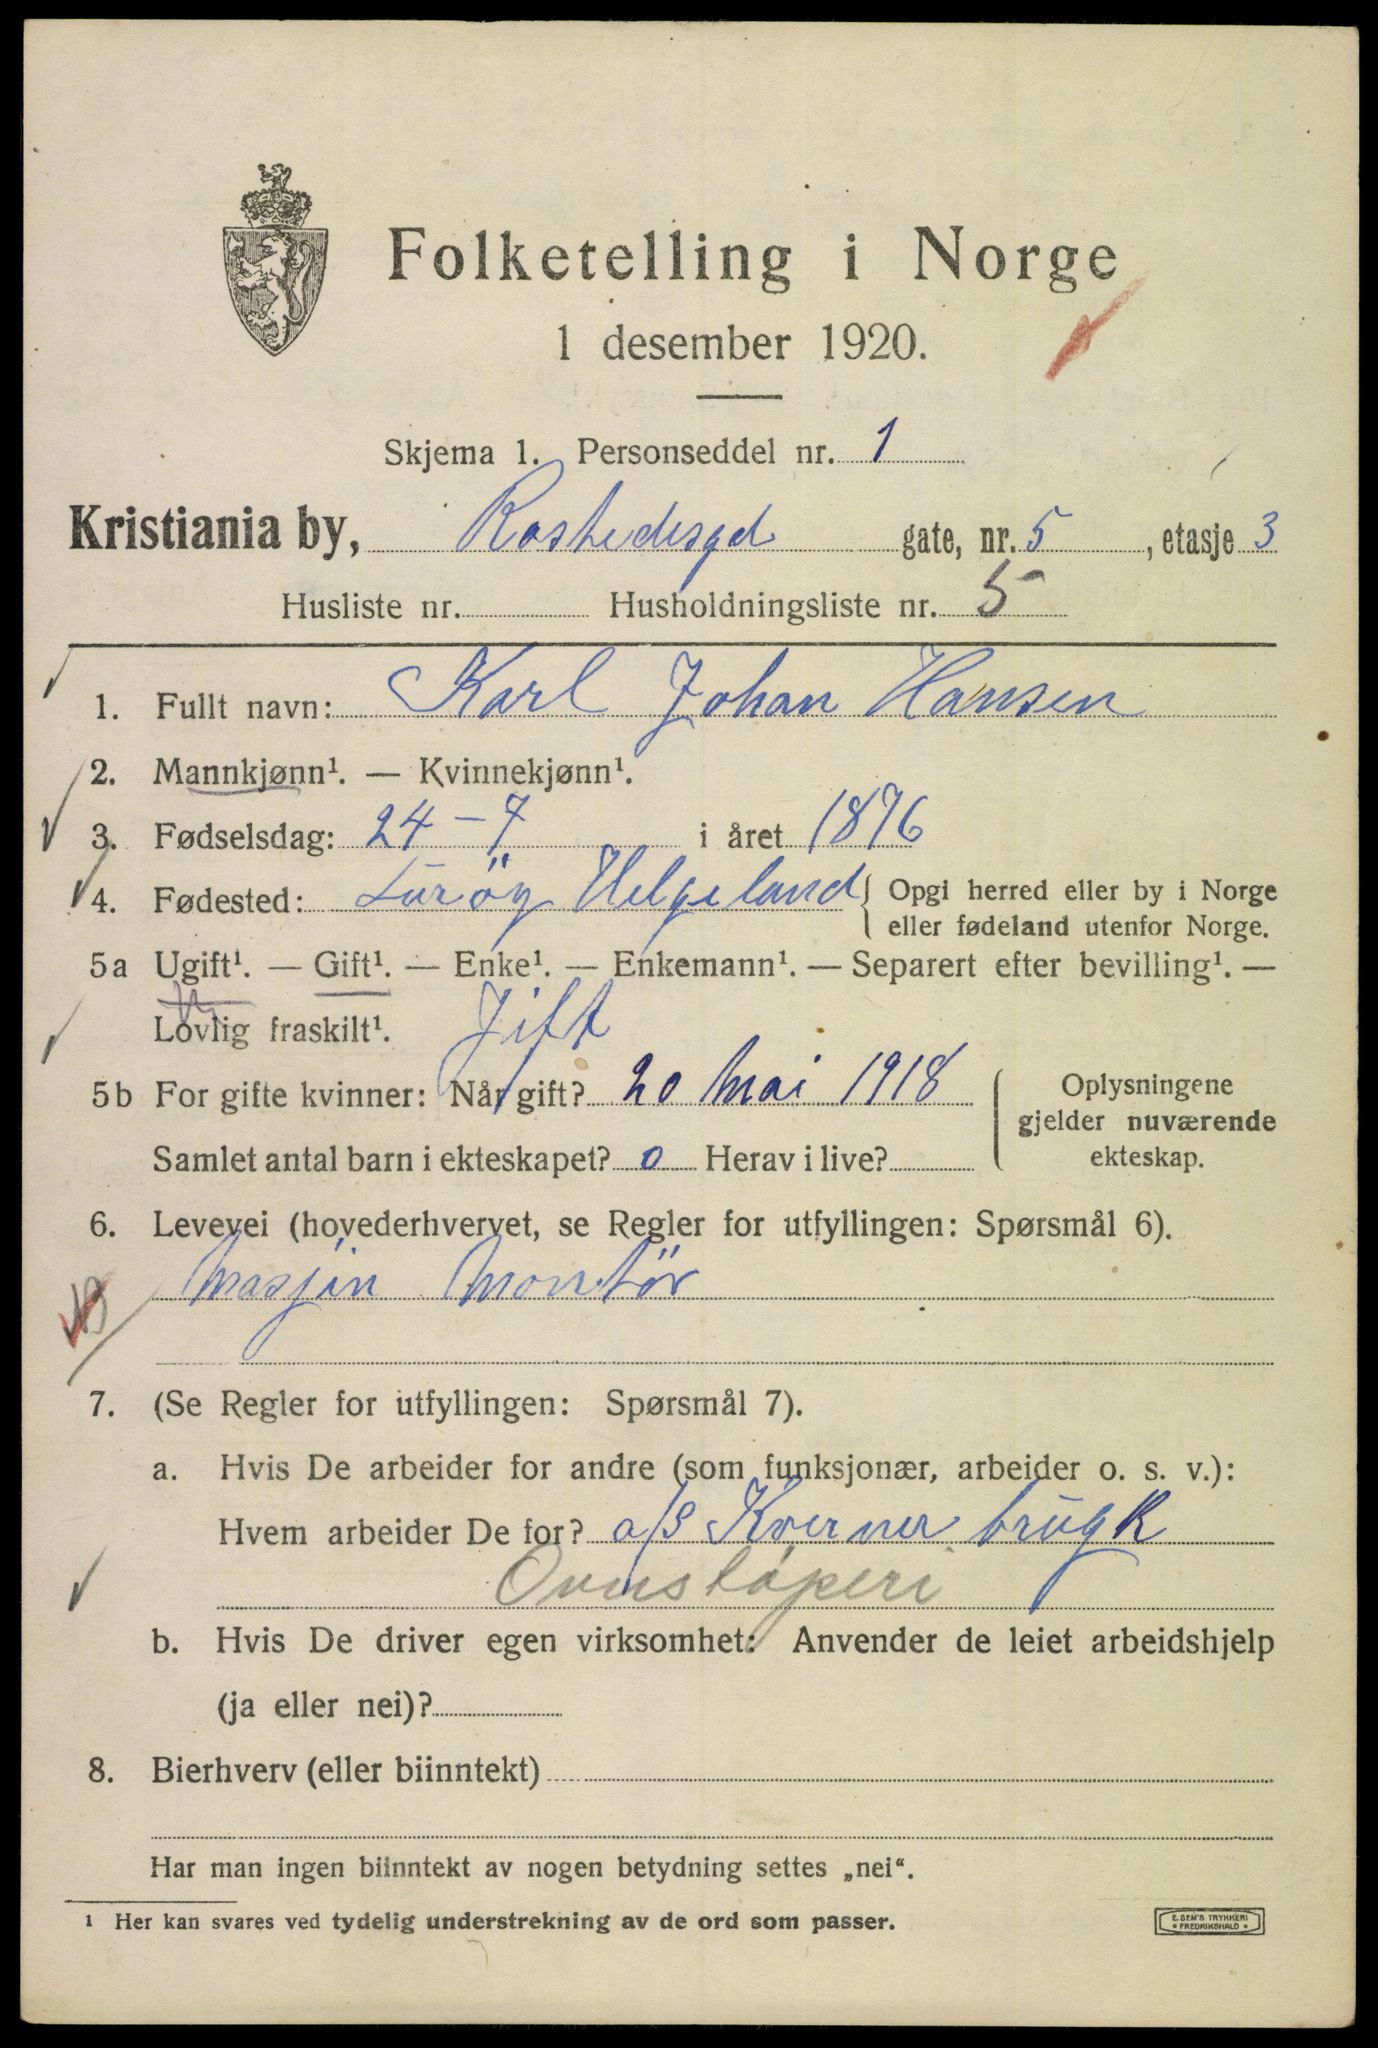 Folketelling i Norge
1 desember 1920.
Skjema 1. Personseddel nr. 1
Kristiania by, Rostedsgd gate, nr. 5, etasje 3
Husliste nr. Husholdningsliste nr. 5
1. Fullt navn: Karl Johan Hansen
2. Mannkjønn¹. — Kvinnekjønn¹.
3. Fødselsdag: 24 – 7 i året 1876
4. Fødested: Luröy Helgeland { Opgi herred eller by i Norge
eller fødeland utenfor Norge.
5a Ugift¹. — Gift¹. — Enke¹. — Enkemann¹. — Separert efter bevilling¹. —
Lovlig fraskilt¹. Jift
5b For gifte kvinner: Når gift? 20 Mai 1918
Samlet antal barn i ekteskapet? 0 Herav i live?
Oplysningene
gjelder nuværende
ekteskap.
6. Levevei (hovederhvervet, se Regler for utfyllingen: Spørsmål 6).
Masjin Montör
7. (Se Regler for utfyllingen: Spørsmål 7).
a. Hvis De arbeider for andre (som funksjonær, arbeider o. s. v.):
Hvem arbeider De for? a/s Kverner brugk
Ovnstøperi
b. Hvis De driver egen virksomhet: Anvender de leiet arbeidshjelp
(ja eller nei)?
8. Bierhverv (eller biinntekt)
Har man ingen biinntekt av nogen betydning settes „nei“.
¹ Her kan svares ved tydelig understrekning av de ord som passer.
E. SEM'S TRYKKERI
* FREDRIKSHALD *